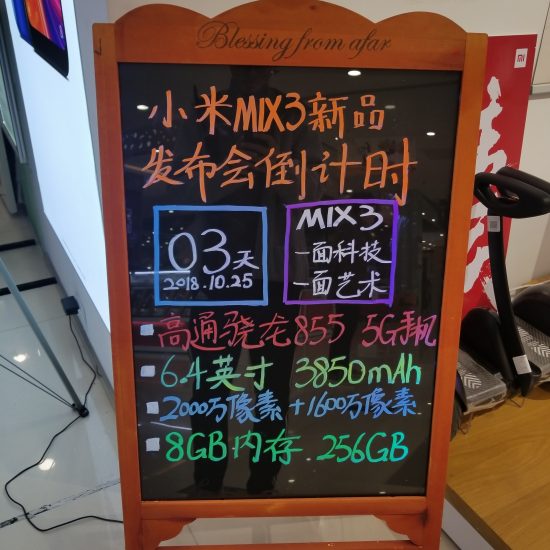 Blessing from afar
小米MIX3新品
发布会倒计时
03天
2018.10.25
MIX3
一面科技
一面艺术
高通骁龙855 5G手机
6.4英寸 3850mAh
2000万像素+1600万像素
8GB内存 256GB